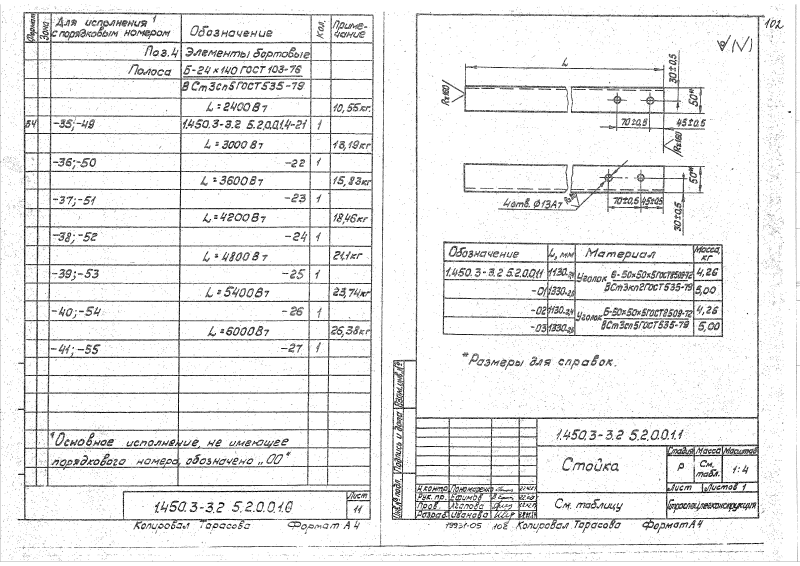 Формат
Зона
Для исполнения¹ с порядковым номером
Обозначение
Кол.
Примечание
Поз.4 Элементы бортовые
Полоса Б-24×140 ГОСТ 103-76
ВСт3сп5 ГОСТ 535-79
L=2400 Вт 10,55кг.
Б4 -35;-49 1.450.3-3.2 5.2.0.0.1.4-21 1
L=3000 Вт 13,19кг
-36;-50 -22 1
L=3600 Вт 15,83кг
-37;-51 -23 1
L=4200 Вт 18,46кг
-38;-52 -24 1
L=4800 Вт 21,1кг
-39;-53 -25 1
L=5400 Вт 23,74кг
-40;-54 -26 1
L=6000 Вт 26,38кг
-41;-55 -27 1
¹Основное исполнение, не имеющее
порядкового номера, обозначено „00"
1.450.3-3.2 5.2.0.0.1.0
Лист
11
Копировал Тарасова Формат А4
102
L
30±0,5
50*
Rz160
70±0,5
45±0,5
Rz160
50*
4отв. Ф13А7
70±0,5
45±0,5
30±0,5
Обозначение L, мм Материал Масса, кг
1.450.3-3.2 5.2.0.0.1.1 1130 Уголок Б-50×50×5 ГОСТ 8509-72 4,26
-01 1330 ВСт3кп2 ГОСТ 535-79 5,00
-02 1130 Уголок Б-50×50×5 ГОСТ 8509-72 4,26
-03 1330 ВСт3сп5 ГОСТ 535-79 5,00
*Размеры для справок.
Взам.инв.№
Подпись и дата
Инв.№ подл.
1.450.3-3.2 5.2.0.0.1.1
Стойка
Стадия Масса Масштаб
Р См. табл. 1:4
Лист Листов 1
Н.контр. Пономаренко
Рук. пр. Ефимов
Пров.
Разраб. Иванова
См. таблицу
19931-05 102 Копировал Тарасова Формат А4